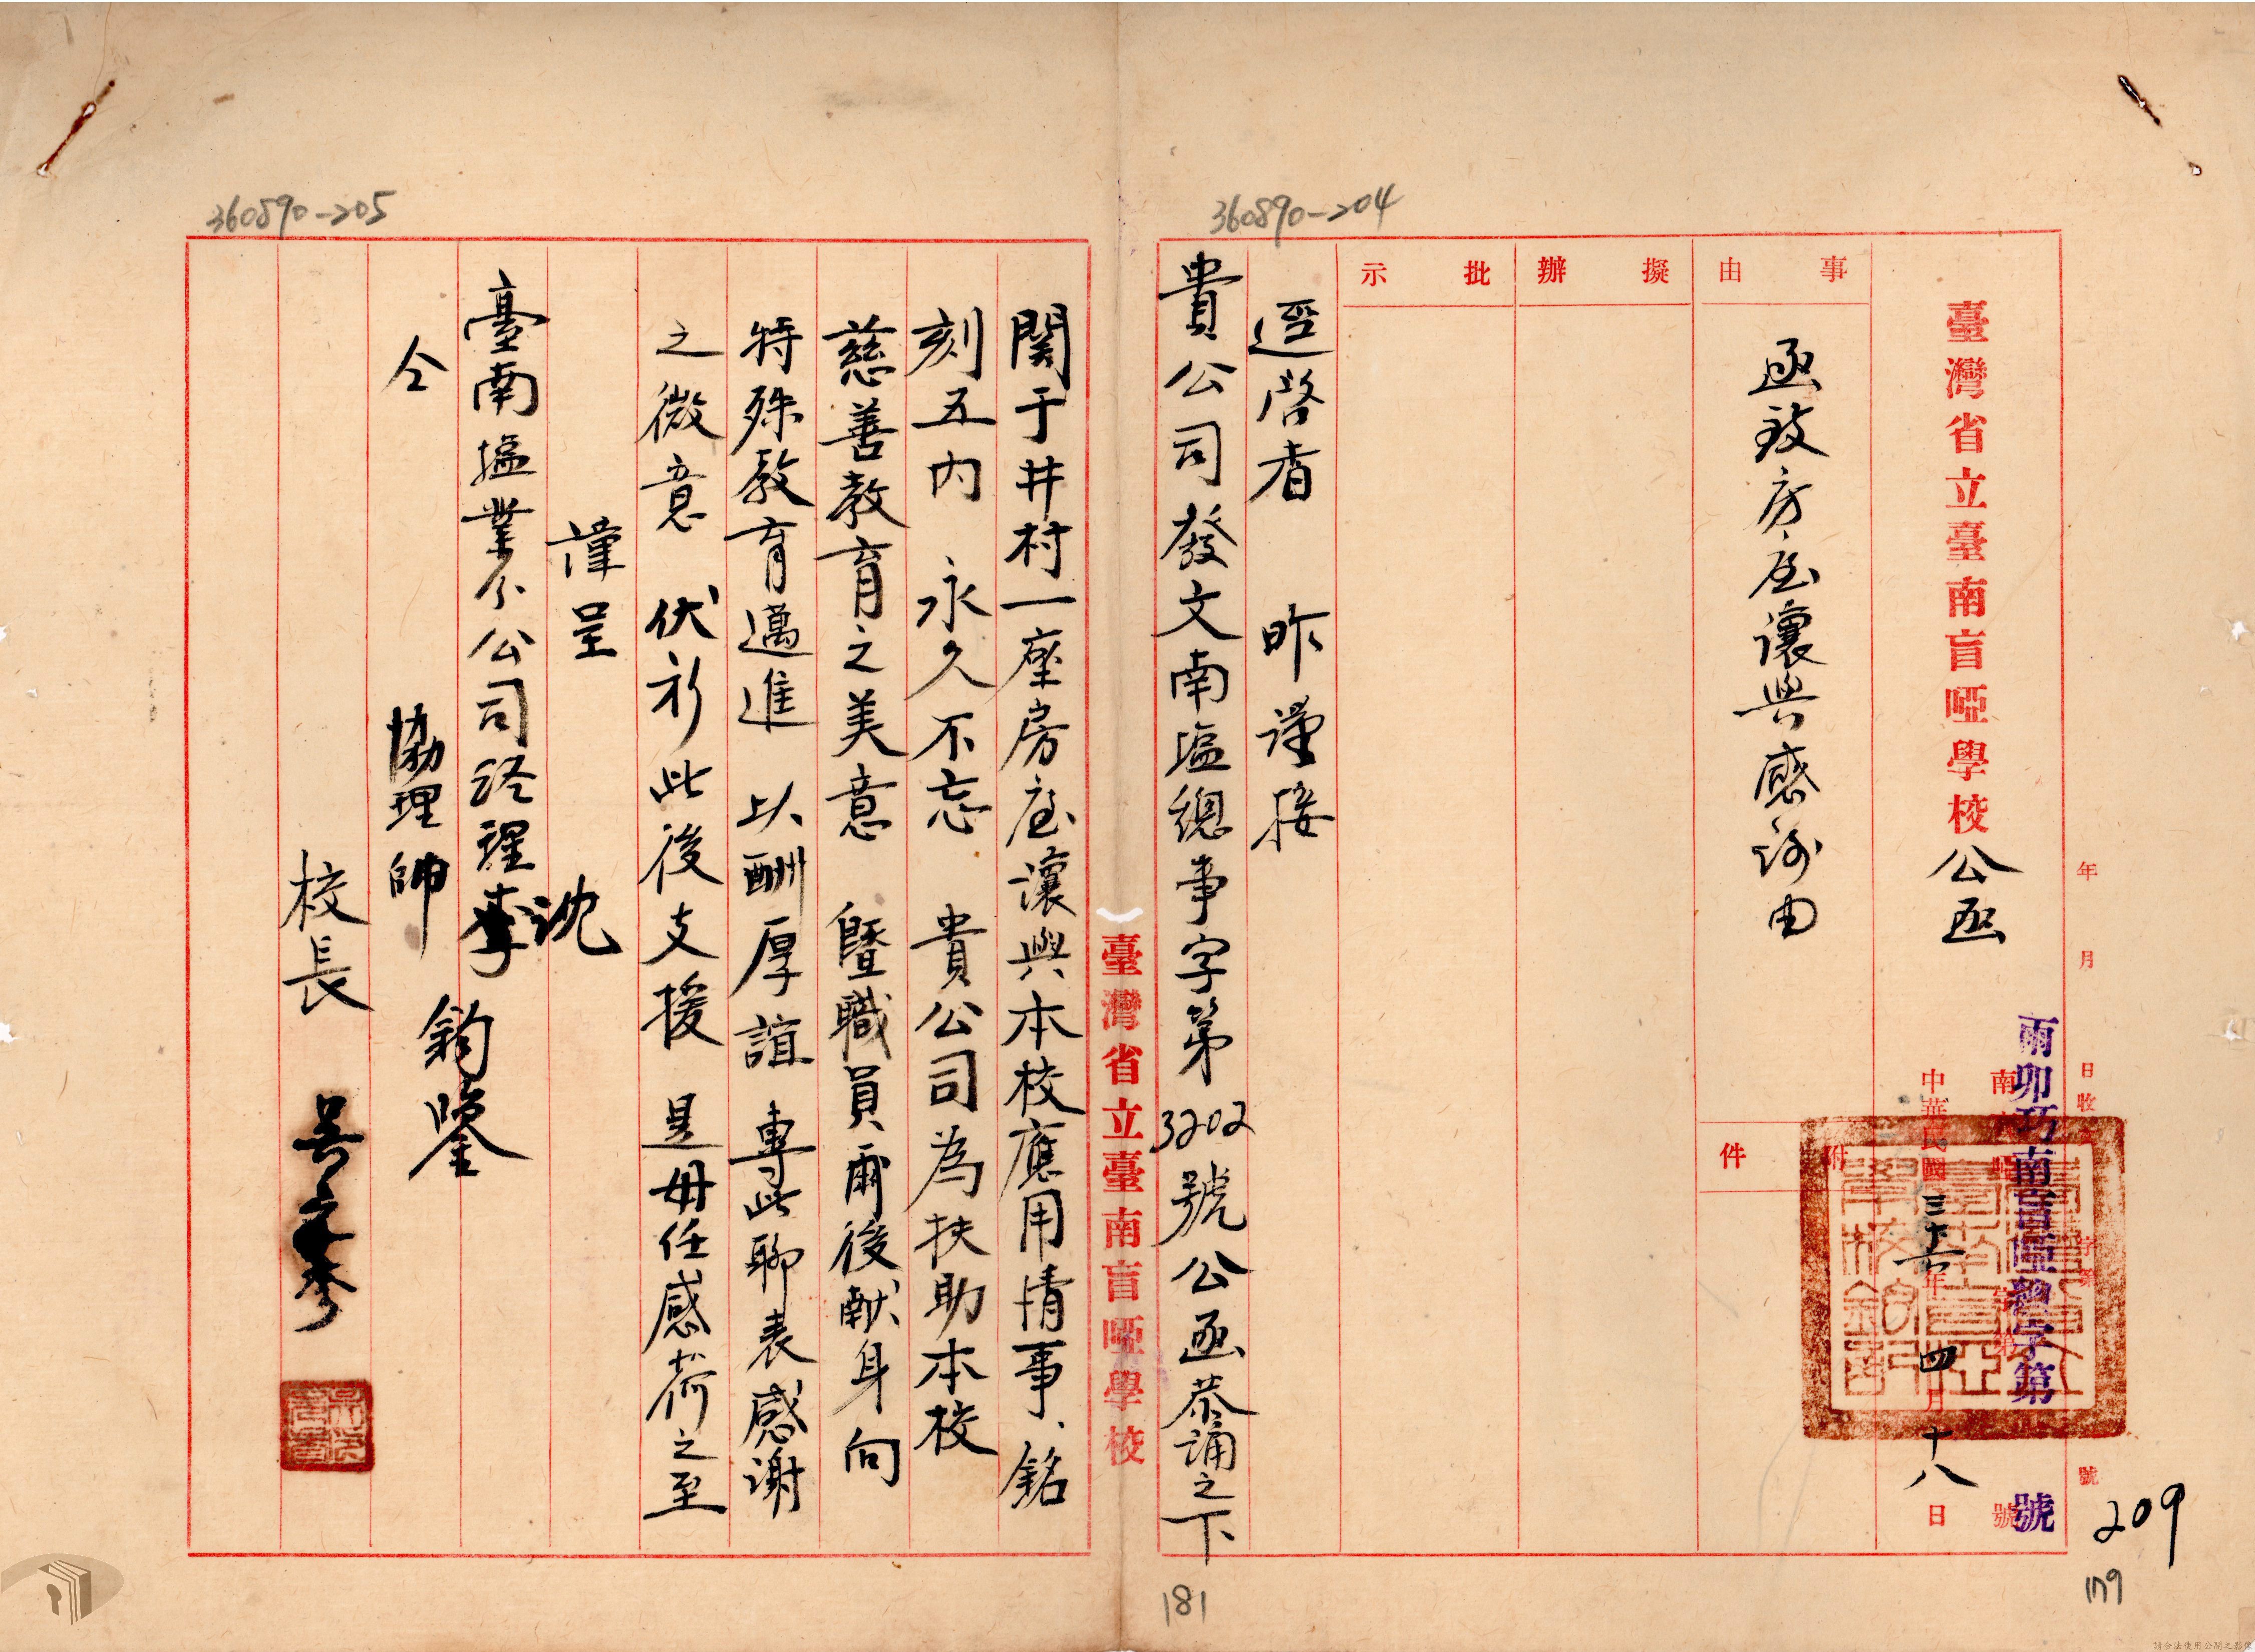 360890-204
360890-205
年 月 日收 字第 號
雨卯巧南盲啞總字第 號
209
179
臺灣省立臺南盲啞學校公函
中華民國三十六年四月十八日
南 號
事由
函致房屋讓與感謝由
附件
擬辦
批示
逕啓者 昨謹接
貴公司發文南塩總事字第3202號公函恭誦之下
181
臺灣省立臺南盲啞學校
関于井村一座房屋讓與本校應用情事、銘
刻五内 永久不忘 貴公司為扶助本校
慈善教育之美意 暨職員爾後献身向
特殊教育邁進 以酬厚誼 專此聊表感謝
之微意 伏祈此後支援 是毋任感荷之至
謹呈
臺南塩業分公司経理 沈 李
仝 協理帥 鈞鑒
校長 吳
請合法使用公開之影像